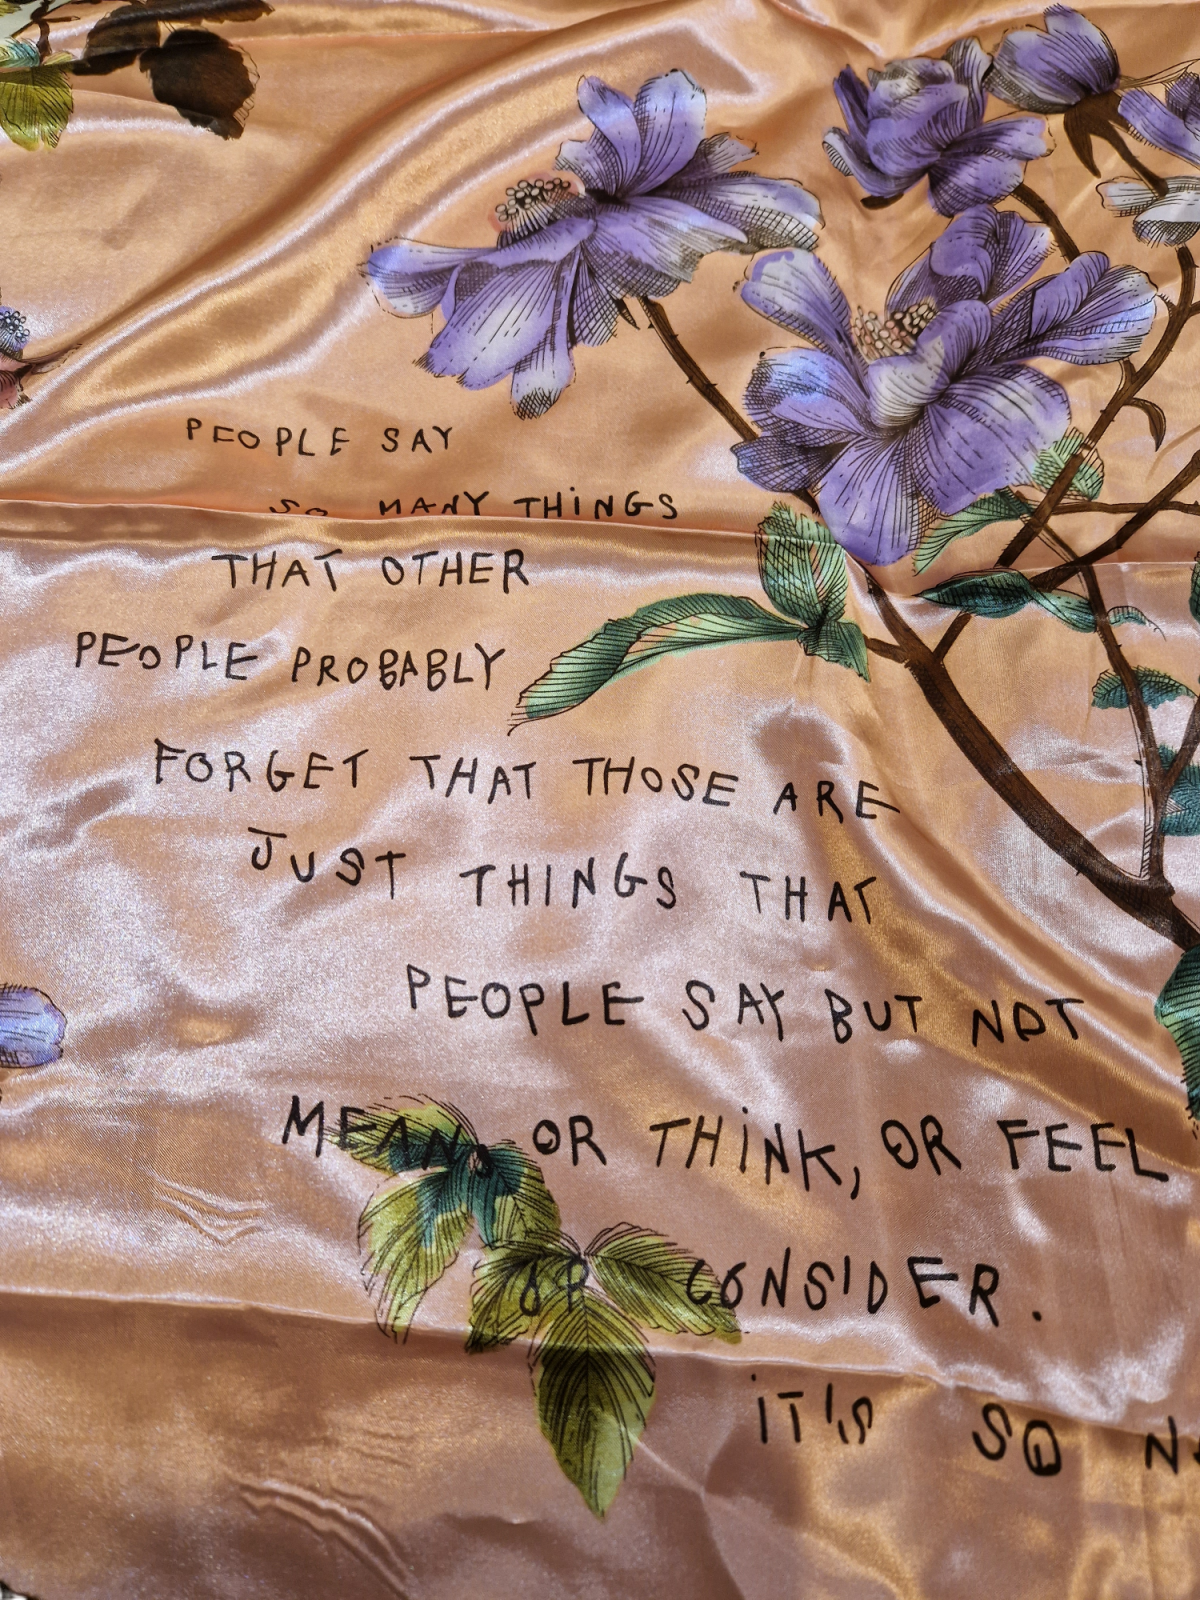 PEOPLE SAY
SO MANY THINGS
THAT OTHER
PEOPLE PROBABLY
FORGET THAT THOSE ARE
JUST THINGS THAT
PEOPLE SAY BUT NOT
MEAN, OR THINK, OR FEEL
OR CONSIDER.
IT'S SO